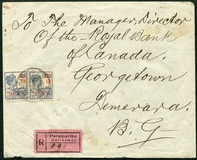 To The Manager, Director
Of the Royal Bank
of Canada.
Georgetown
Demerara.
B. G
R
Paramaribo